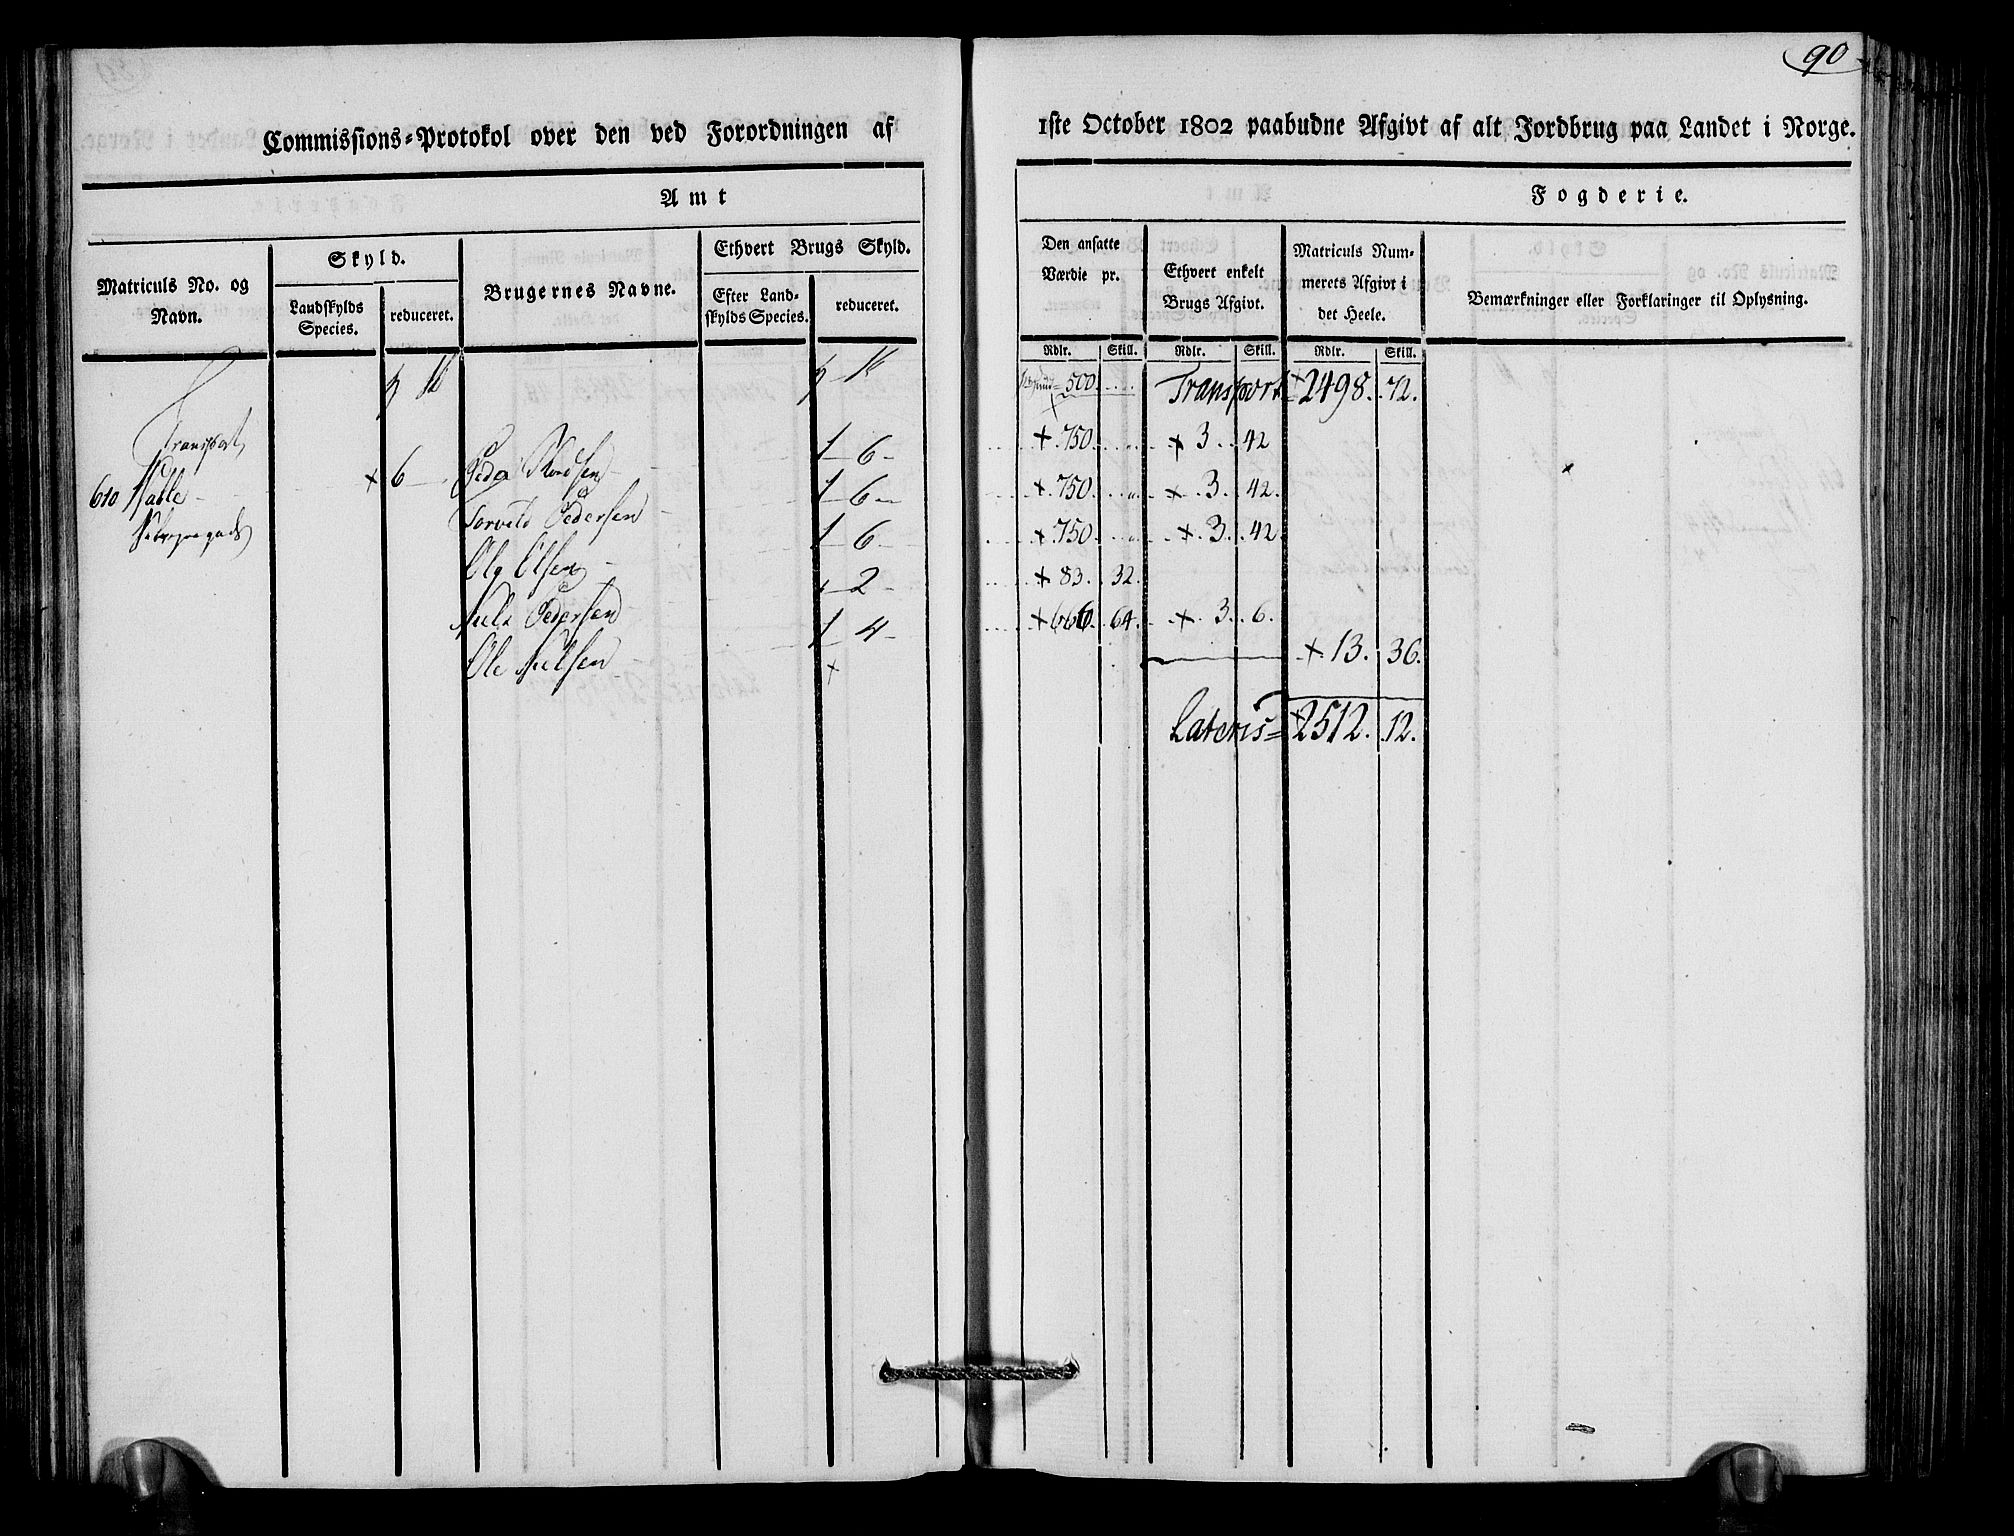 90
Commissions-Protokol over den ved Forordningen af
1ste October 1802 paabudne Afgivt af alt Jordbrug paa Landet i Norge.
Amt
Fogderie.
Matriculs No. og Navn.
Skyld.
Landskylds Species.
reduceret.
Brugernes Navne.
Ethvert Brugs Skyld.
Efter Land-
skylds Species.
reduceret.
Den ansatte
Værdie pr.
Ethvert enkelt
Brugs Afgivt.
Matriculs Num-
merets Afgivt i
det Heele.
Bemærkninger eller Forklaringer til Oplysning.
Rdlr. Skill. Rdlr. Skill. Rdlr. Skill.
500. Transport 2498. 72.
Transport
1 6 + 750 + 3. 42
610 + 6 Peder
1 6 + 750. + 3. 42.
Pedersen
1 6 + 750. + 3. 42
Ole Olsen
2 + 83. 32.
Niels Pedersen
1 4 + 666. 64. + 3. 6.
Ole Nielsen + + 13. 36.
Lateris = + 2512. 12.